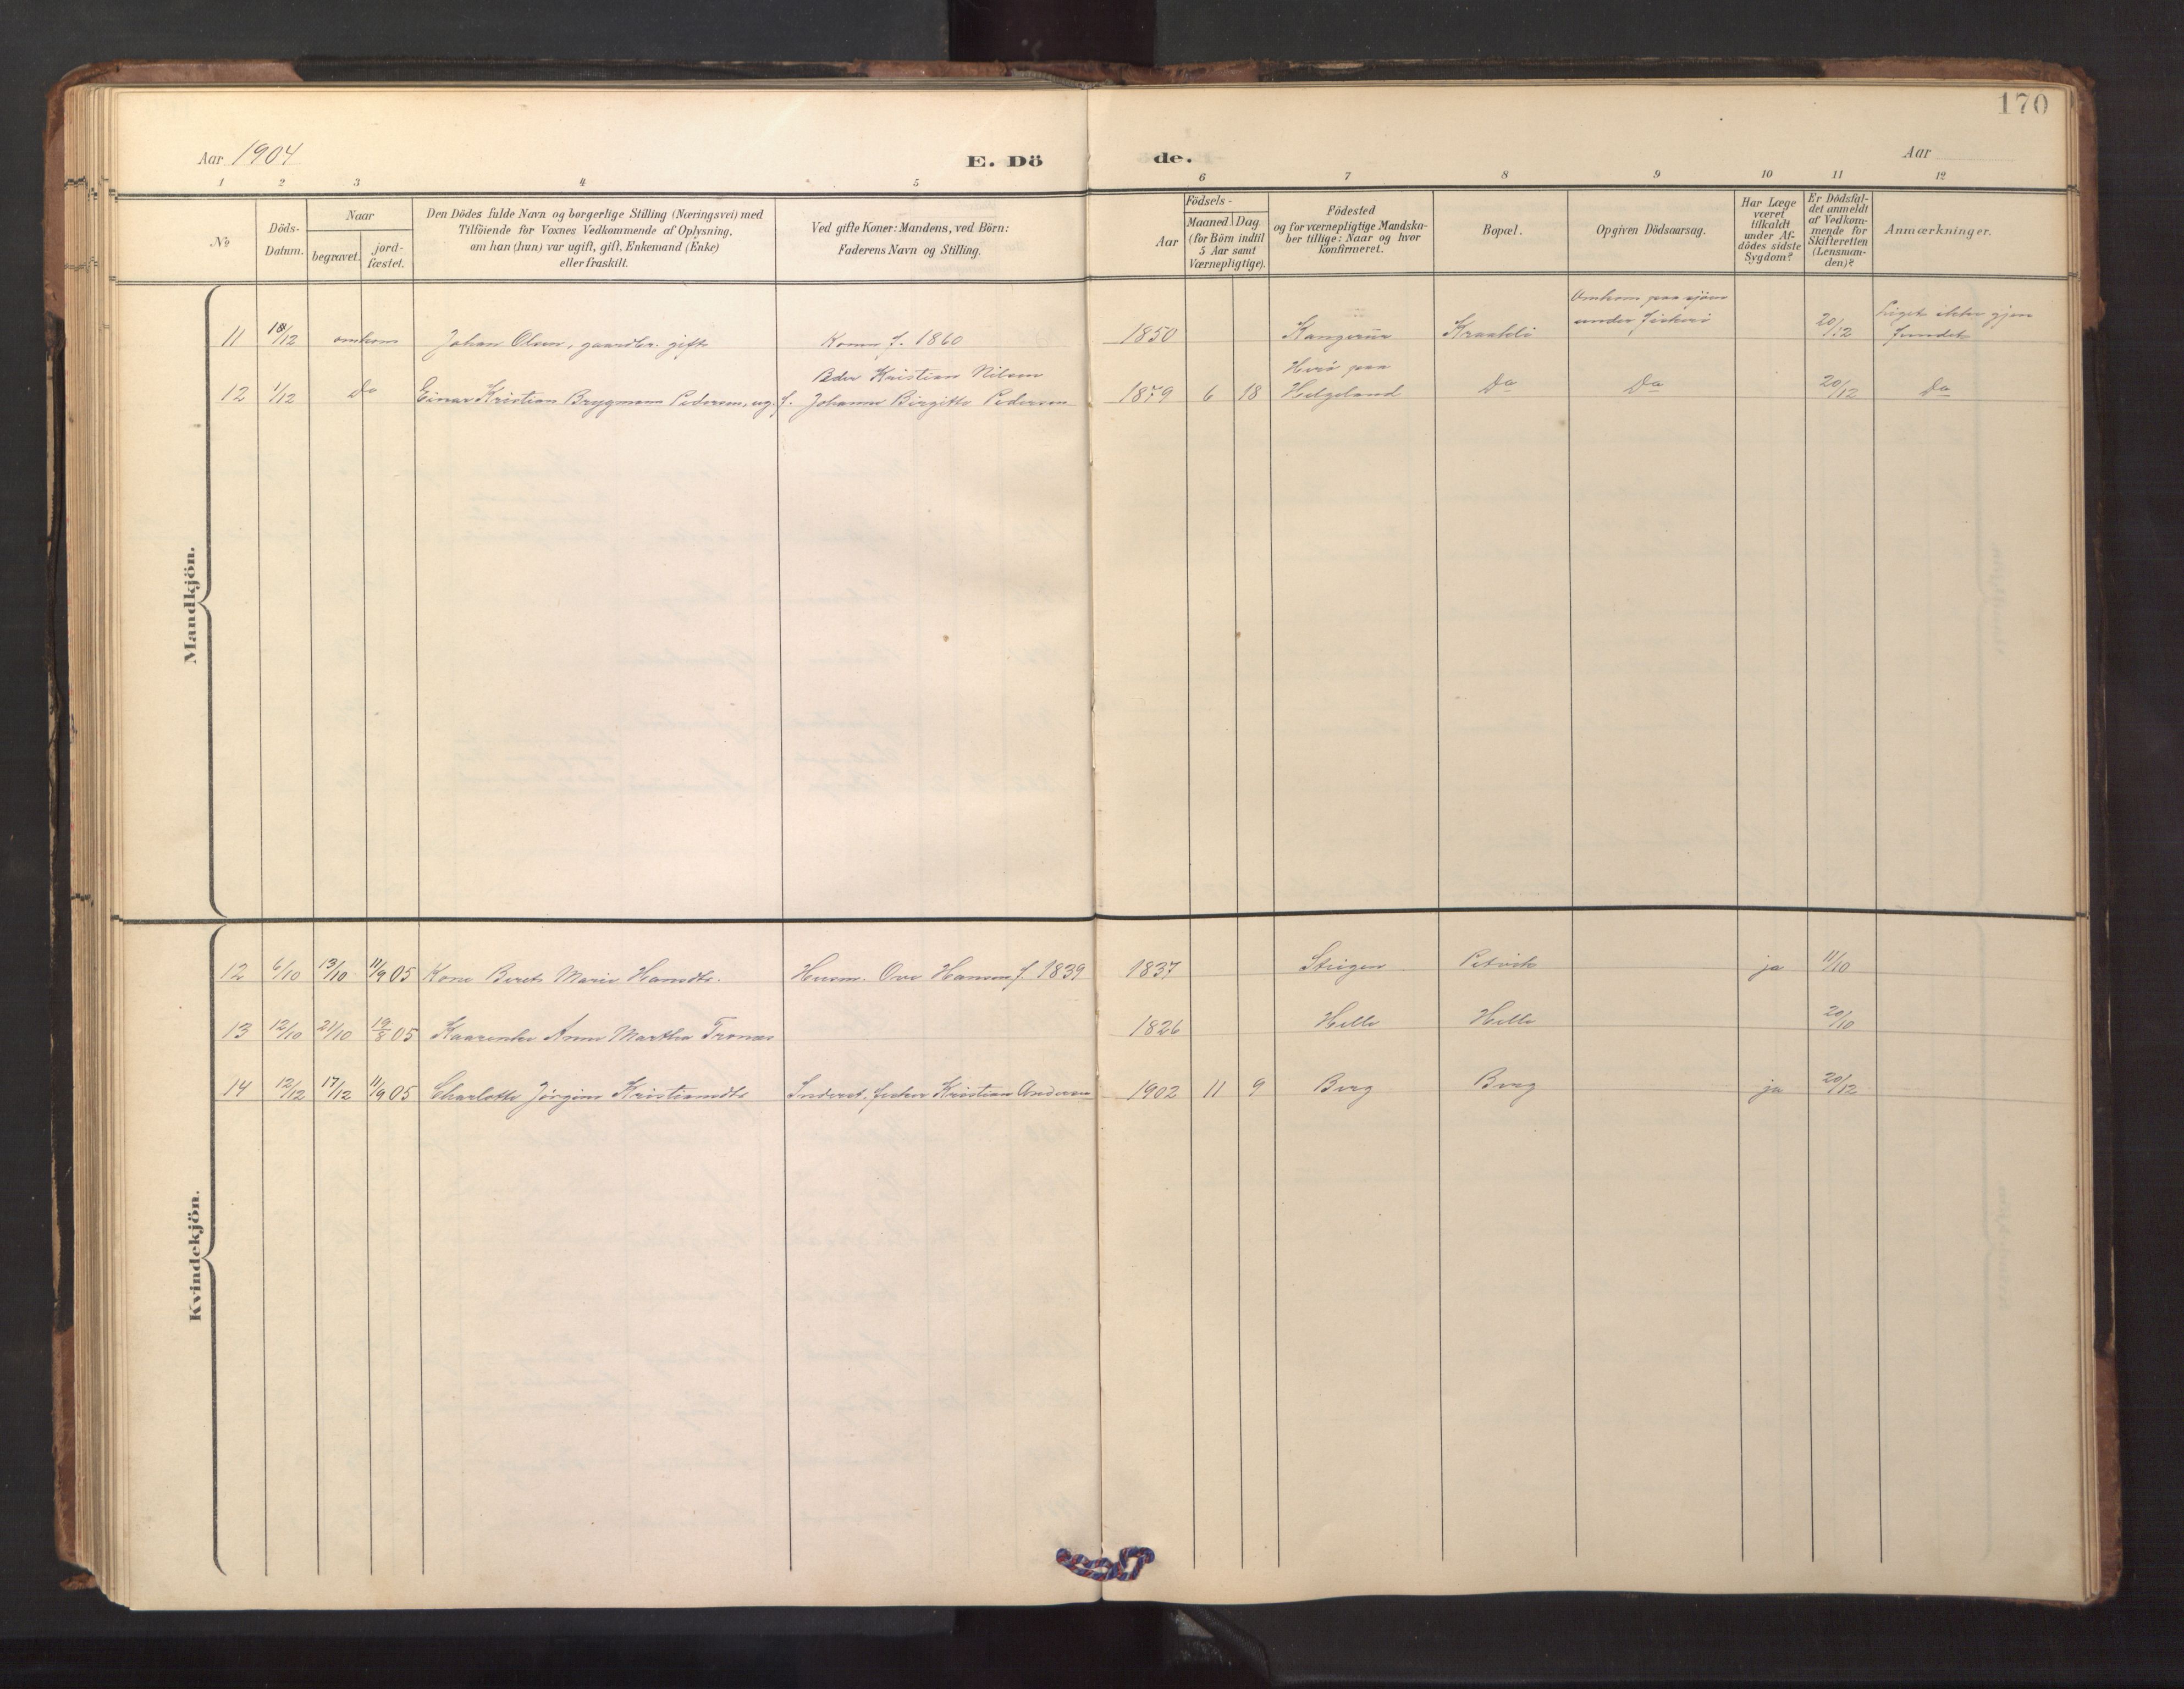 170
Aar 1904
E. Dö
de.
Aar
1 2 3 4 5 6 7 8 9 10 11 12
No
Döds-
Datum.
Naar
begravet.
jord-
fæstet.
Den Dödes fulde Navn og borgerlige Stilling (Næringsvei) med
Tilföiende for Voxnes Vedkommende af Oplysning,
om han (hun) var ugift, gift, Enkemand (Enke)
eller fraskilt.
Ved gifte Koner: Mandens, ved Börn:
Faderens Navn og Stilling.
Födsels-
Aar
Maaned. Dag
(for Börn indtil
5 Aar samt
Værnepligtige).
Födested
og for værnepligtige Mandska-
ber tillige: Naar og hvor
konfirmeret.
Bopæl.
Opgiven Dödsaarsag.
Har Læge
været
tilkaldt
under Af-
dödes sidste
Sygdom?
Er Dödsfal-
det anmeldt
af Vedkom-
mende for
Skifteretten
(Lensman-
den)?
Anmærkninger.
Mandkjön.
Omkom paa sjöen
under fiskeri
Liget ikke gjen
fundet
11 18/12 omkom Johan Olsen, gaardbr. gift Kone f. 1860 1850 Kraakli 20/12
Peder Kristian Nilsen
Herö paa
12 1/12 Do Einar Kristian Brygmann Pedersen, ug. f. Johanne Birgitte Pedersen 1879 6 18 Helgeland Do Do 20/12 Do
Kvindekjön.
12 6/10 13/10 11/9 05 Kone Beret Marie Hansdtr. Husm. Ove Hansen f 1839 1837 Steigen Petvik ja 11/10
13 12/10 21/10 19/8 05 Kaarenke Anne Martha Tronæs 1826 Helle Helle 20/10
14 12/12 17/12 11/9 05 Charlotte Jörgine Kristiansdtr Inderst. fisker Kristian Andersen 1902 11 9 Berg Berg ja 20/12